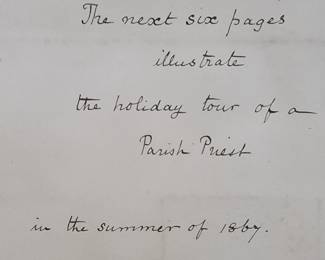 The next six pages
illustrate
the holiday tour of a
Parish Priest
in the summer of 1867.